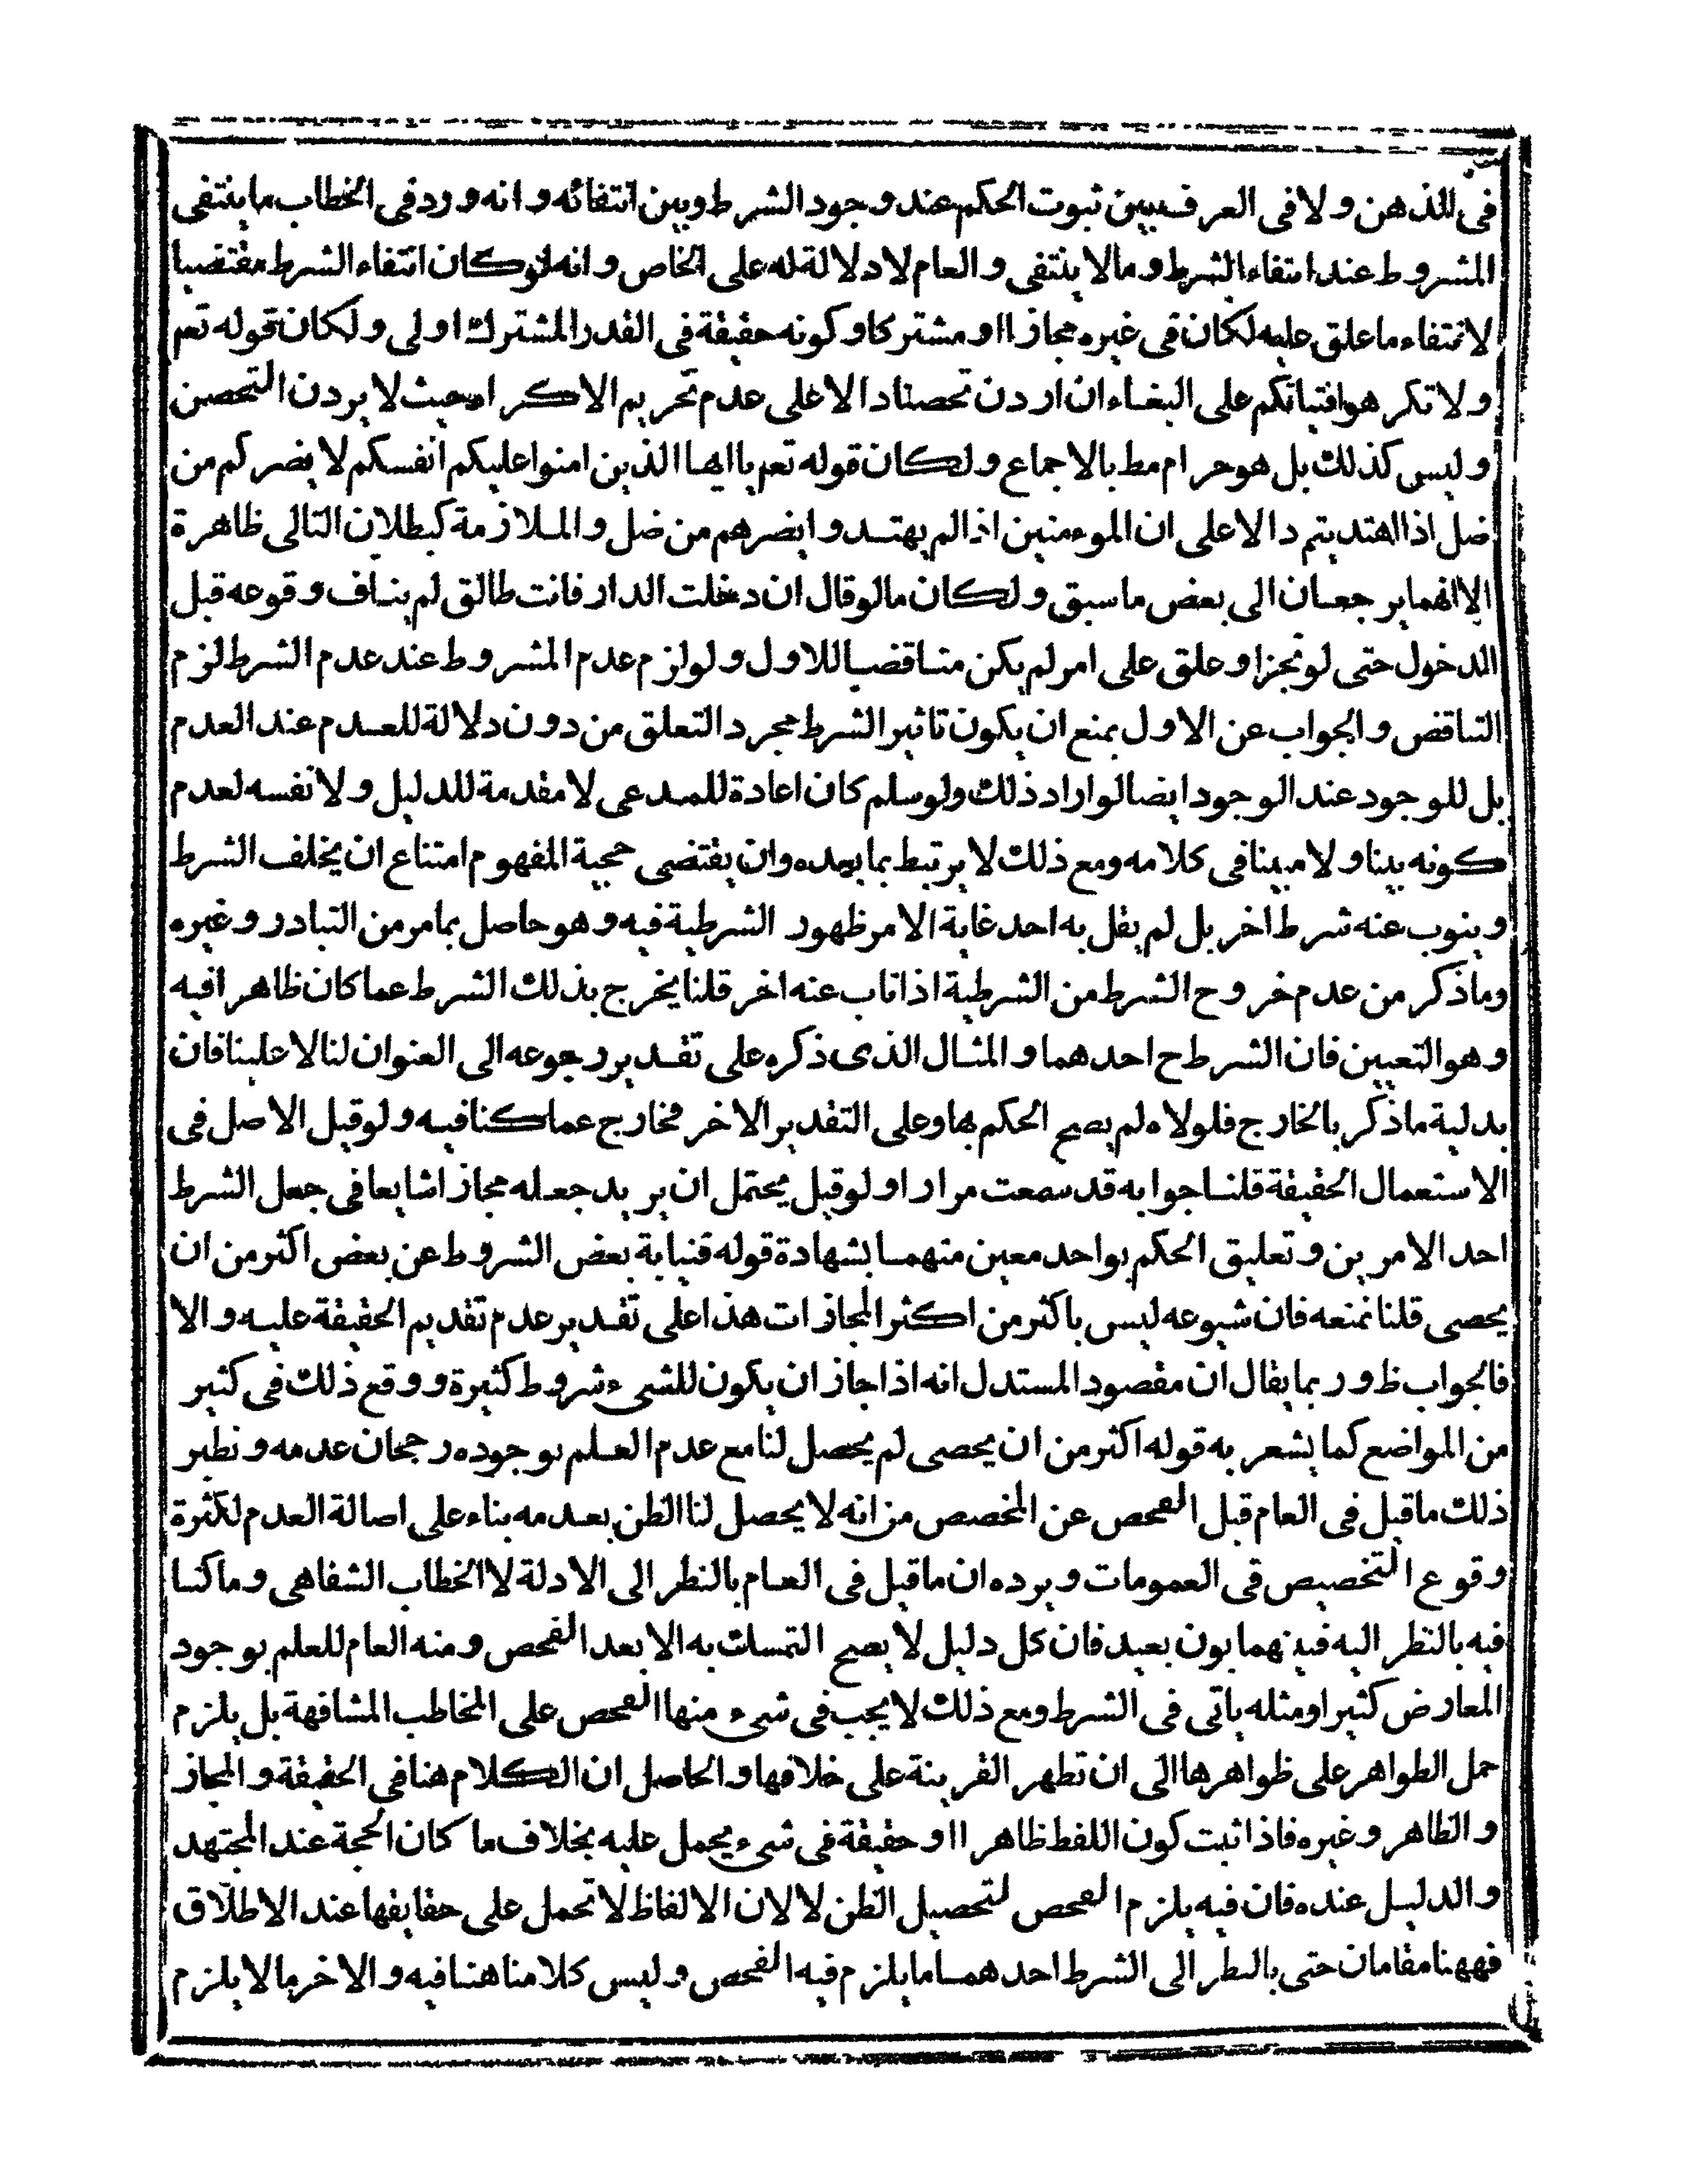 فى الذهن ولا فى العرف بين ثبوت الحكم عند وجود الشرط وبين انتفائه وانه ورد فى الخطاب ما ينتفى
المشروط عند انتفاء الشرط وما لا ينتفى والعام لا دلالة له على الخاص وانه لو كان انتفاء الشرط مقتضيا
لانتفاء ما علق عليه لكان فى غيره مجازا او مشتركا وكونه حقيقة فى القدر المشترك اولى ولكان قوله تعم
ولا تكرهوا فتياتكم على البغاء ان اردن تحصنا دالا على عدم تحريم الاكراه حيث لا يردن التحصن
وليس كذلك بل هو حرام مط بالاجماع ولكان قوله تعم يا ايها الذين امنوا عليكم انفسكم لا يضركم من
ضل اذا اهتديتم دالا على ان الموءمنين اذا لم يهتدوا يضرهم من ضل والملازمة كبطلان التالى ظاهرة
الا انهما يرجعان الى بعض ما سبق ولكان ما لو قال ان دخلت الدار فانت طالق لم يناف وقوعه قبل
الدخول حتى لو نجزا وعلق على امر لم يكن مناقضا للاول ولو لزم عدم المشروط عند عدم الشرط لزم
التناقض والجواب عن الاول بمنع ان يكون تاثير الشرط مجرد التعلق من دون دلالة للعدم عند العدم
بل للوجود عند الوجود ايضا لو اراد ذلك ولو سلم كان اعادة للمدعى لا مقدمة للدليل ولا نفسه لعدم
كونه بينا ولا مبينا فى كلامه ومع ذلك لا يرتبط بما بعده وان يقتضى حجية المفهوم امتناع ان يخلف الشرط
وينوب عنه شرط اخر بل لم يقل به احد غاية الامر ظهور الشرطية فيه وهو حاصل بما مر من التبادر وغيره
وما ذكر من عدم خروج الشرط من الشرطية اذا ناب عنه اخر قلنا يخرج بذلك الشرط عما كان ظاهرا فيه
وهو التعيين فان الشرط ح احدهما والمثال الذى ذكره على تقدير رجوعه الى العنوان لنا لا علينا فان
بدلية ما ذكر بالخارج فلولاه لم يصح الحكم بها وعلى التقدير الاخر فخارج عما كنا فيه ولو قيل الاصل فى
الاستعمال الحقيقة قلنا جوابه قد سمعت مرارا ولو قيل يحتمل ان يريد جعله مجازا شايعا فى جعل الشرط
احد الامرين وتعليق الحكم بواحد معين منهما بشهادة قوله فنيابة بعض الشروط عن بعض اكثر من ان
يحصى قلنا نمنعه فان شيوعه ليس باكثر من اكثر المجازات هذا على تقدير عدم تقديم الحقيقة عليه والا
فالجواب ظ وربما يقال ان مقصود المستدل انه اذا جاز ان يكون للشىء شروط كثيرة ووقع ذلك فى كثير
من المواضع كما يشعر به قوله اكثر من ان يحصى لم يحصل لنا مع عدم العلم بوجوده رجحان عدمه ونظير
ذلك ما قيل فى العام قبل الفحص عن المخصص من انه لا يحصل لنا الظن بعدمه بناء على اصالة العدم لكثرة
وقوع التخصيص فى العمومات ويرده ان ما قيل فى العام بالنظر الى الادلة لا الخطاب الشفاهى وما كنا
فيه بالنظر اليه فبينهما بون بعيد فان كل دليل لا يصح التمسك به الا بعد الفحص ومنه العام للعلم بوجود
المعارض كثيرا ومثله ياتى فى الشرط ومع ذلك لا يجب فى شىء منها الفحص على المخاطب المشافهة بل يلزم
حمل الظواهر على ظواهرها الى ان تظهر القرينة على خلافها والحاصل ان الكلام هنا فى الحقيقة والمجاز
والظاهر وغيره فاذا ثبت كون اللفظ ظاهرا او حقيقة فى شىء يحمل عليه بخلاف ما كان الحجة عند المجتهد
والدليل عنده فان فيه يلزم الفحص لتحصيل الظن لا لان الالفاظ لا تحمل على حقايقها عند الاطلاق
فههنا مقامان حتى بالنظر الى الشرط احدهما ما يلزم فيه الفحص وليس كلامنا هنا فيه والاخر ما لا يلزم